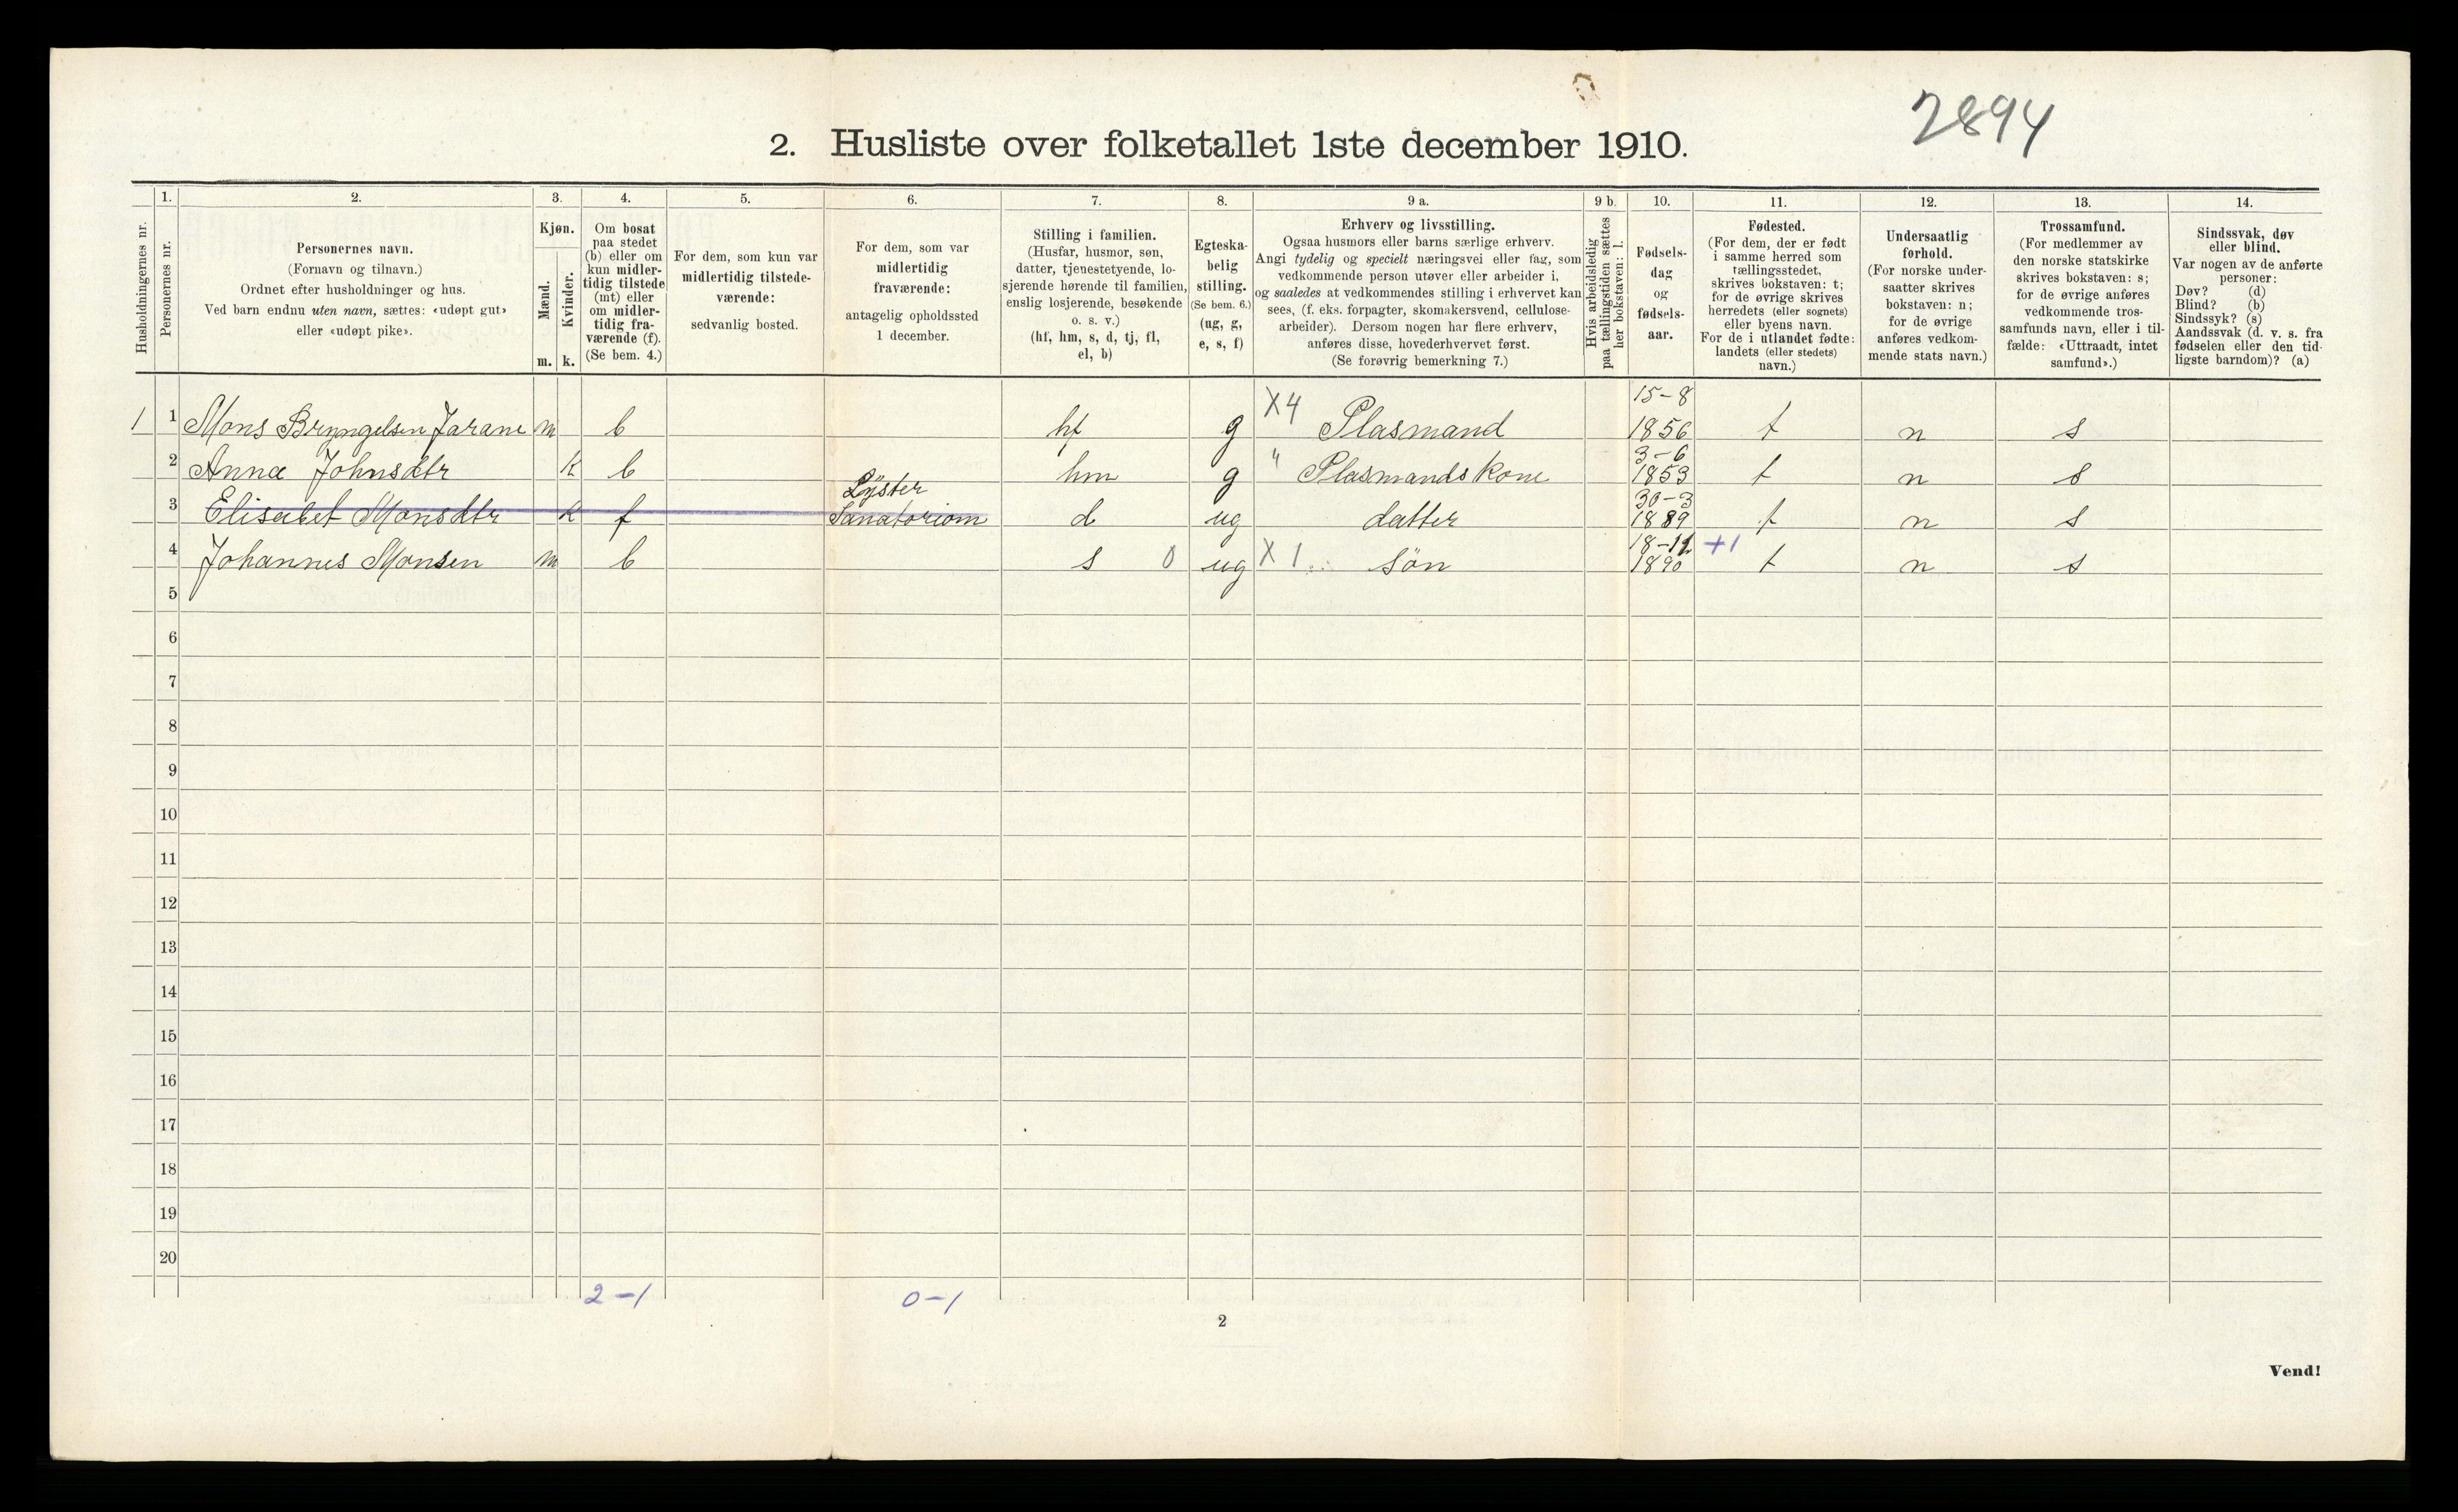 2894
2. Husliste over folketallet 1ste december 1910.
Husholdningernes nr.
1.
Personernes nr.
2.
Personernes navn.
(Fornavn og tilnavn.)
Ordnet efter husholdninger og hus.
Ved barn endnu uten navn, sættes: «udøpt gut»
eller «udøpt pike».
3.
Kjøn.
Mænd.
m.
Kvinder.
k.
4.
Om bosat
paa stedet
(b) eller om
kun midler-
tidig tilstede
(mt) eller
om midler-
tidig fra-
værende (f).
(Se bem. 4.)
5.
For dem, som kun var
midlertidig tilstede-
værende:
sedvanlig bosted.
6.
For dem, som var
midlertidig
fraværende:
antagelig opholdssted
1 december.
7.
Stilling i familien.
(Husfar, husmor, søn,
datter, tjenestetyende, lo-
sjerende hørende til familien,
enslig losjerende, besøkende
o. s. v.)
(hf, hm, s, d, tj, fl,
el, b)
8.
Egteska-
belig
stilling.
(Se bem. 6.)
(ug, g,
e, s, f)
9 a.
Erhverv og livsstilling.
Ogsaa husmors eller barns særlige erhverv.
Angi tydelig og specielt næringsvei eller fag, som
vedkommende person utøver eller arbeider i,
og saaledes at vedkommendes stilling i erhvervet kan
sees, (f. eks. forpagter, skomakersvend, cellulose-
arbeider). Dersom nogen har flere erhverv,
anføres disse, hovederhvervet først.
(Se forøvrig bemerkning 7.)
9 b.
Hvis arbeidsledig
paa tællingstiden sættes
her bokstaven: l.
10.
Fødsels-
dag
og
fødsels-
aar.
11.
Fødested.
(For dem, der er født
i samme herred som
tællingsstedet,
skrives bokstaven: t;
for de øvrige skrives
herredets (eller sognets)
eller byens navn.
For de i utlandet fødte:
landets (eller stedets)
navn.)
12.
Undersaatlig
forhold.
(For norske under-
saatter skrives
bokstaven: n;
for de øvrige
anføres vedkom-
mende stats navn.)
13.
Trossamfund.
(For medlemmer av
den norske statskirke
skrives bokstaven: s;
for de øvrige anføres
vedkommende tros-
samfunds navn, eller i til-
fælde: «Uttraadt, intet
samfund».)
14.
Sindssvak, døv
eller blind.
Var nogen av de anførte
personer:
Døv? (d)
Blind? (b)
Sindssyk? (s)
Aandssvak (d. v. s. fra
fødselen eller den tid-
ligste barndom)? (a)
1 1 Mons Bryngelsen Jarane m b hf g X4 Plasmand 15-8 1856 t n s
2 Anna Johnsdtr k b hm g " Plasmands kone 3-6 1853 t n s
3 Elisabet Monsdtr k f Lyster Sanatoriom d ug datter 30-3 1889 t n s
4 Johannes Monsen m b s 0 ug X 1 søn 18-11 1890 +1 t n s
5
6
7
8
9
10
11
12
13
14
15
16
17
18
19
20
2-1 0-1
2
Vend!